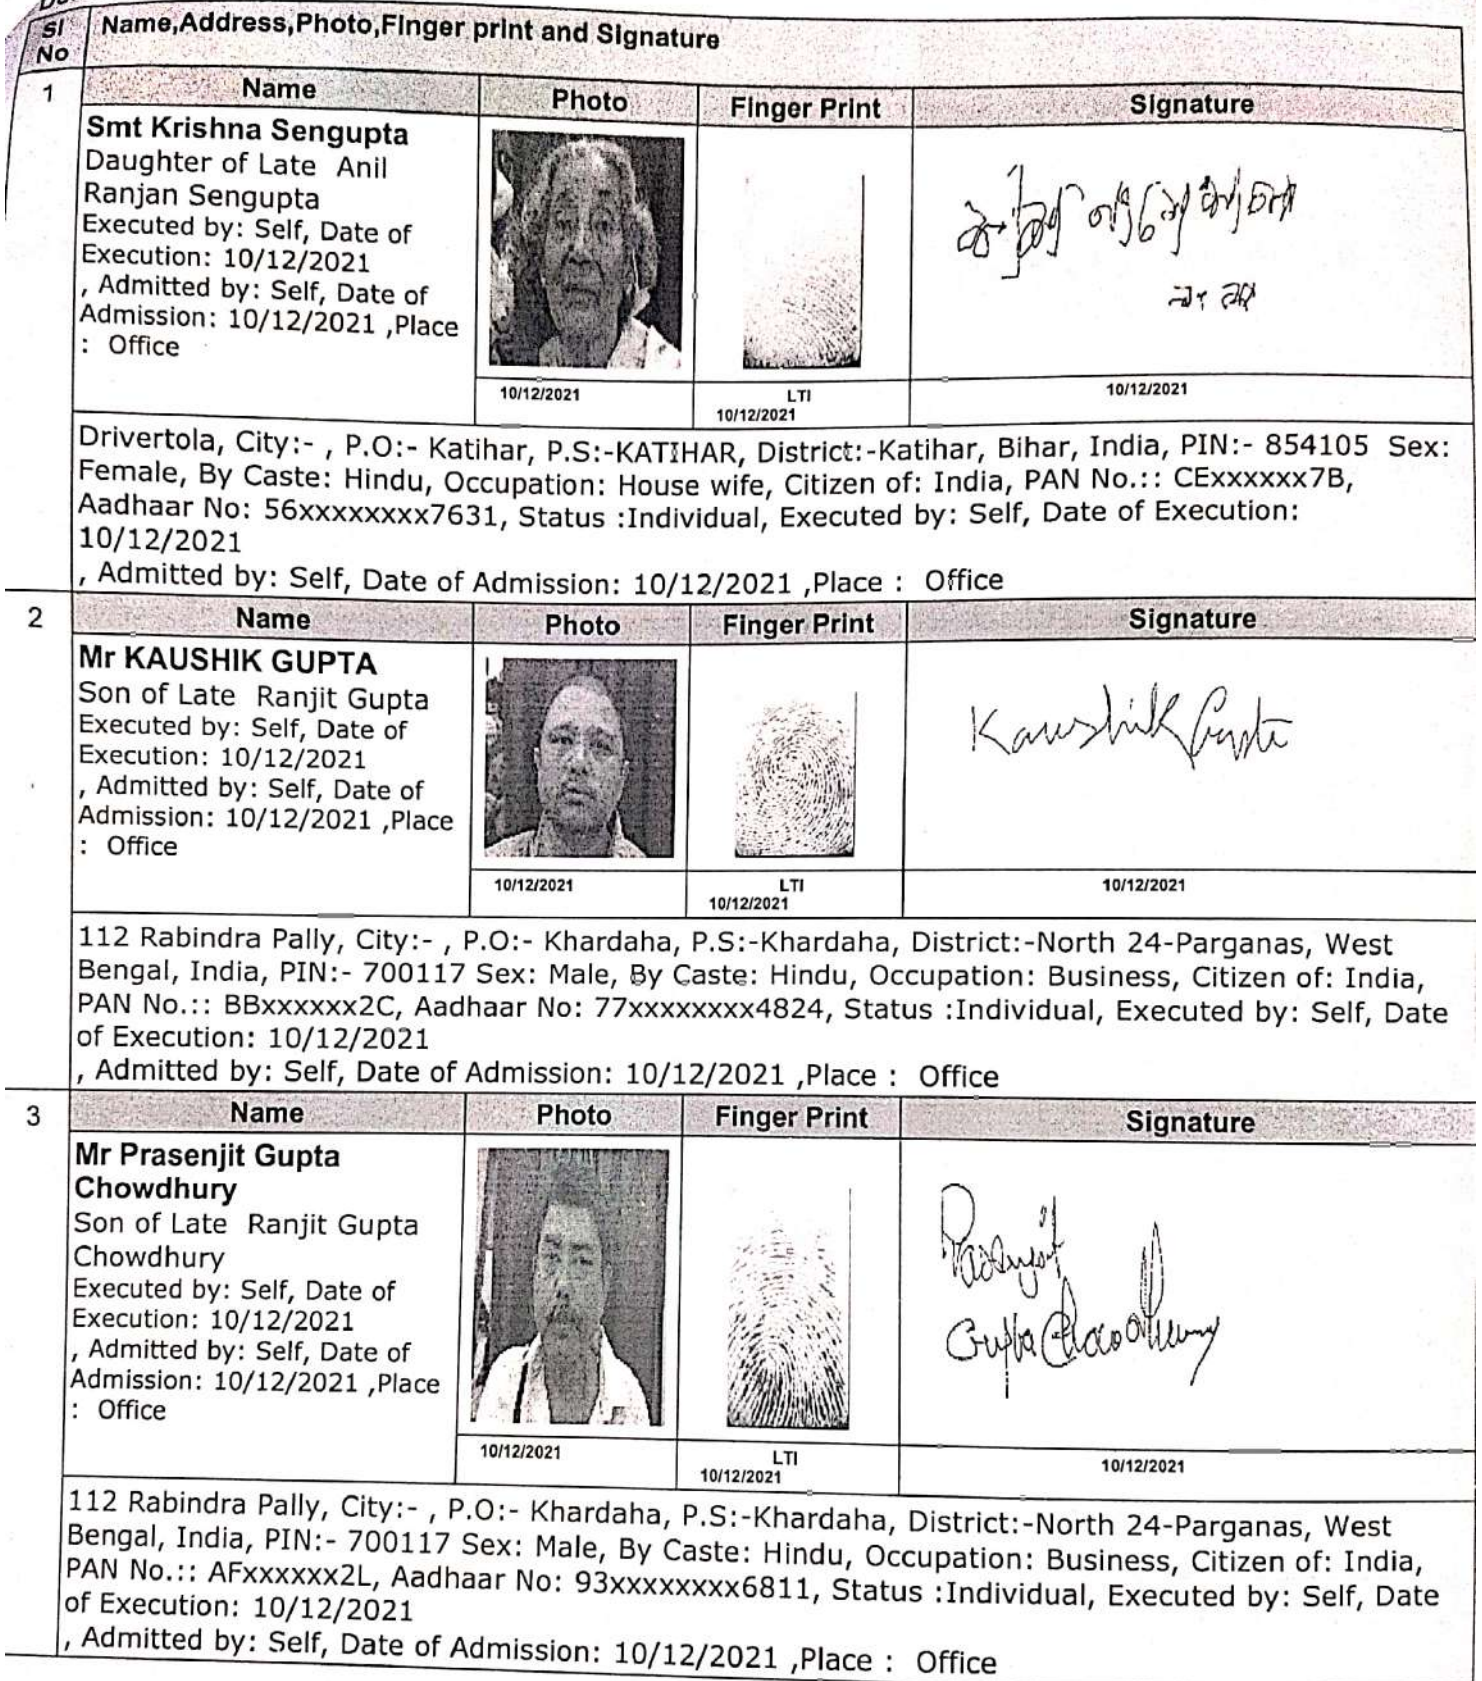 Sl No
Name,Address,Photo,Finger print and Signature
1
Name
Photo
Finger Print
Signature
Smt Krishna Sengupta
Daughter of Late Anil
Ranjan Sengupta
Executed by: Self, Date of
Execution: 10/12/2021
, Admitted by: Self, Date of
Admission: 10/12/2021 ,Place
: Office
10/12/2021
LTI
10/12/2021
10/12/2021
Drivertola, City:- , P.O:- Katihar, P.S:-KATIHAR, District:-Katihar, Bihar, India, PIN:- 854105 Sex:
Female, By Caste: Hindu, Occupation: House wife, Citizen of: India, PAN No.:: CExxxxxx7B,
Aadhaar No: 56xxxxxxxx7631, Status :Individual, Executed by: Self, Date of Execution:
10/12/2021
, Admitted by: Self, Date of Admission: 10/12/2021 ,Place : Office
2
Name
Photo
Finger Print
Signature
Mr KAUSHIK GUPTA
Son of Late Ranjit Gupta
Executed by: Self, Date of
Execution: 10/12/2021
, Admitted by: Self, Date of
Admission: 10/12/2021 ,Place
: Office
Kaushik Gupta
10/12/2021
LTI
10/12/2021
10/12/2021
112 Rabindra Pally, City:- , P.O:- Khardaha, P.S:-Khardaha, District:-North 24-Parganas, West
Bengal, India, PIN:- 700117 Sex: Male, By Caste: Hindu, Occupation: Business, Citizen of: India,
PAN No.:: BBxxxxxx2C, Aadhaar No: 77xxxxxxxx4824, Status :Individual, Executed by: Self, Date
of Execution: 10/12/2021
, Admitted by: Self, Date of Admission: 10/12/2021 ,Place : Office
3
Name
Photo
Finger Print
Signature
Mr Prasenjit Gupta
Chowdhury
Son of Late Ranjit Gupta
Chowdhury
Executed by: Self, Date of
Execution: 10/12/2021
, Admitted by: Self, Date of
Admission: 10/12/2021 ,Place
: Office
Prasenjit
Gupta Chowdhury
10/12/2021
LTI
10/12/2021
10/12/2021
112 Rabindra Pally, City:- , P.O:- Khardaha, P.S:-Khardaha, District:-North 24-Parganas, West
Bengal, India, PIN:- 700117 Sex: Male, By Caste: Hindu, Occupation: Business, Citizen of: India,
PAN No.:: AFxxxxxx2L, Aadhaar No: 93xxxxxxxx6811, Status :Individual, Executed by: Self, Date
of Execution: 10/12/2021
, Admitted by: Self, Date of Admission: 10/12/2021 ,Place : Office